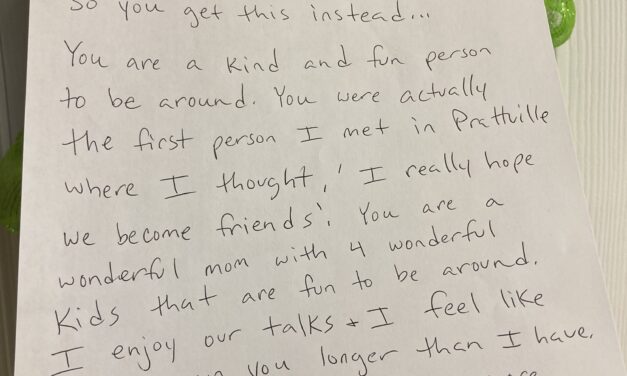 So you get this instead...
You are a kind and fun person
to be around. You were actually
the first person I met in Prattville
where I thought, 'I really hope
we become friends'. You are a
wonderful mom with 4 wonderful
kids that are fun to be around.
I enjoy our talks + I feel like
you longer than I have.